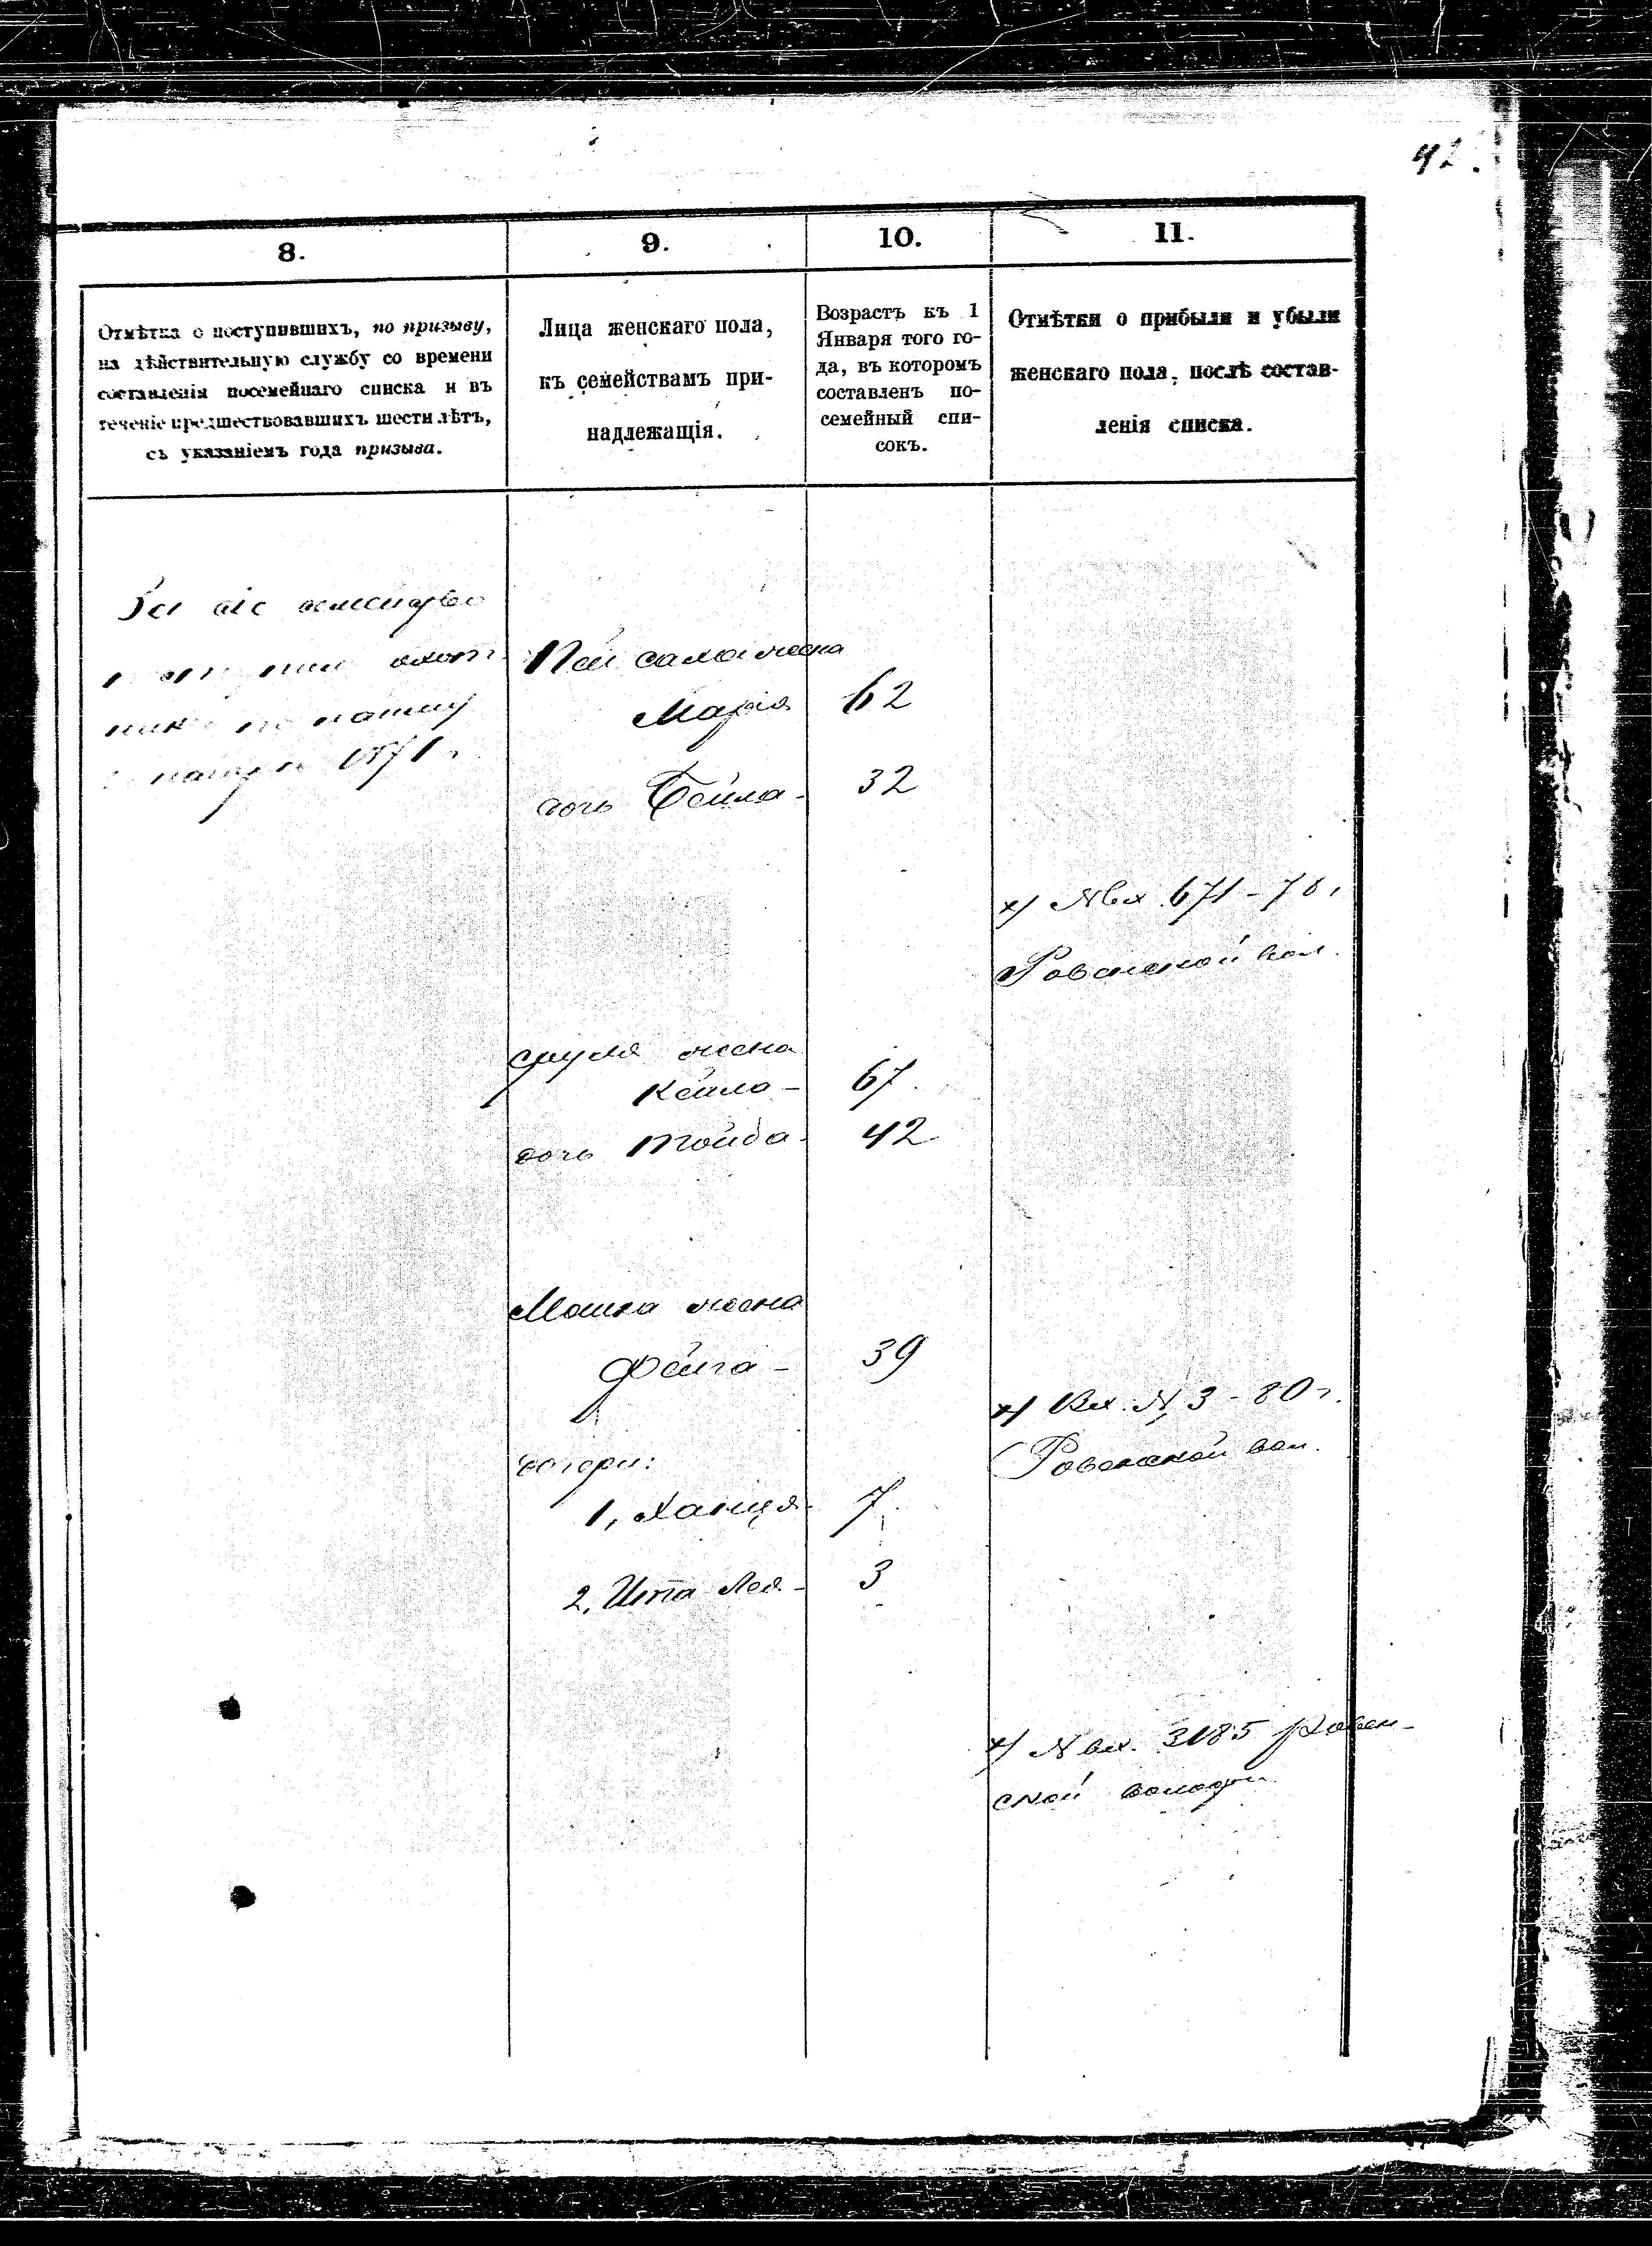 42.
8.
9.
10.
11.
Отмѣтка о поступившихъ, по призыву,
на дѣйствительную службу со времени
составленія посемейнаго списка и въ
теченіе предшествовавшихъ шести лѣтъ,
съ указаніемъ года призыва.
Лица женскаго пола,
къ семействамъ при-
надлежащія.
Возрастъ къ 1
Января того го-
да, въ которомъ
составленъ по-
семейный спи-
сокъ.
Отмѣтки о прибыли и убыли
женскаго пола, послѣ состав-
ленія списка.
За сіе семейство
1871 г.
жена
Марія 62
дочь Бейла - 32
х) № вх 671 - 78 г.
Ровенской вол.
Сруля жена
Кейла - 67.
дочь Тойба - 42
Мошка жена
Фейга - 39
х) Вх. № 3 - 80 г.
Ровенской вол.
дочери:
1, Ханця - 7.
2, Ита Лея - 3
х) № вх. 3185 Ровен-
ской волости